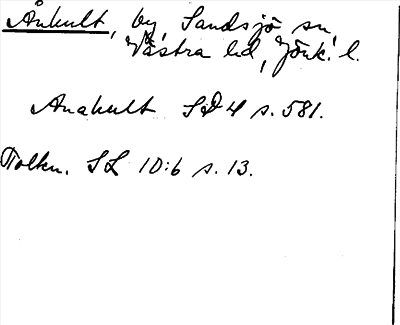 Ånkult, by, Sandsjö sn,
Västra hd, Jönk. l.
Anakult SD 4 s. 581.
Tolkn. SL 10:6 s. 13.